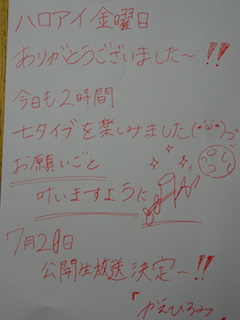 ハロアイ金曜日
ありがとうございました〜!!
今日も2時間
七タイブを楽しみました(*'ω'*)っ
お願いごと
叶いますように
7月20日
公開生放送決定ー!!